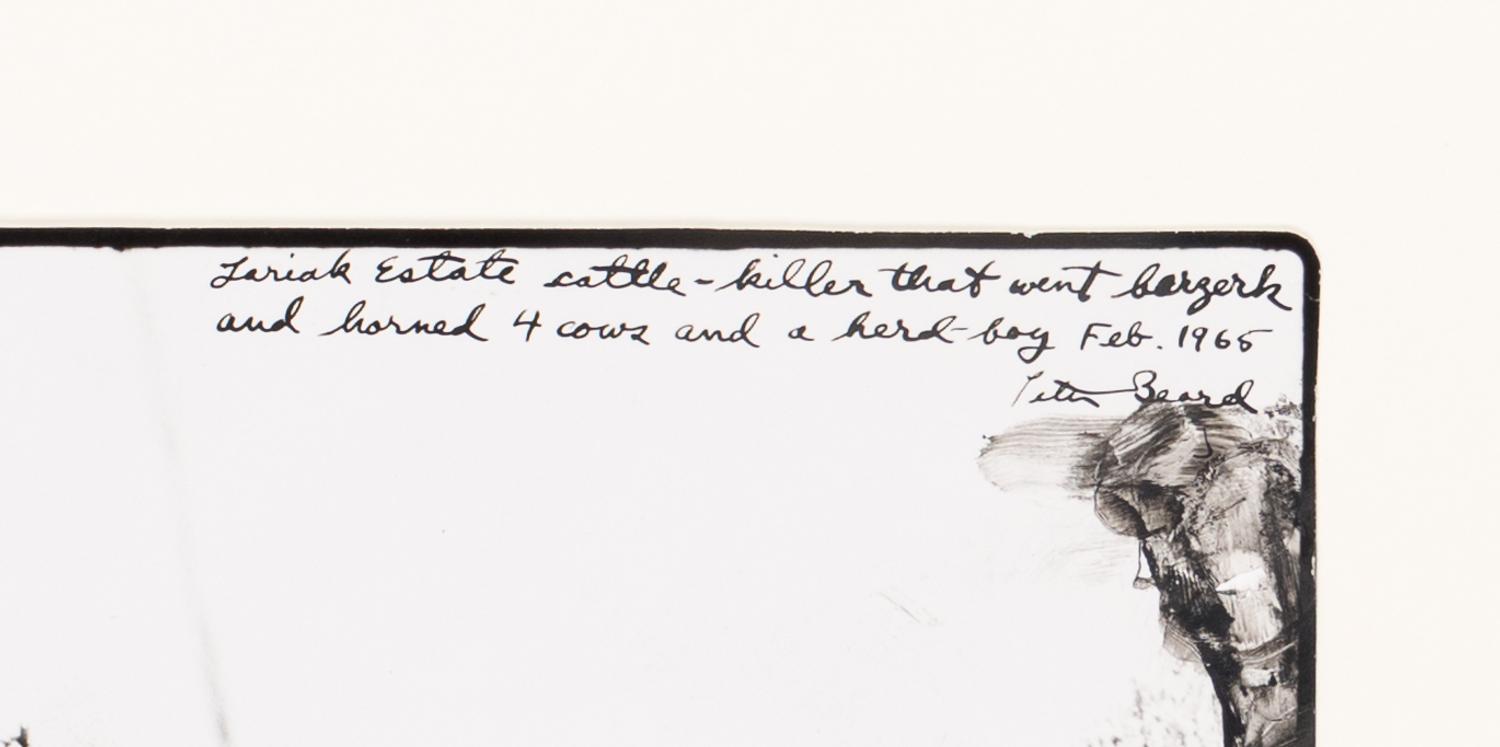 Lariak Estate cattle-killer that went barzerk
and horned 4 cows and a herd-boy Feb. 1965
Peter Beard